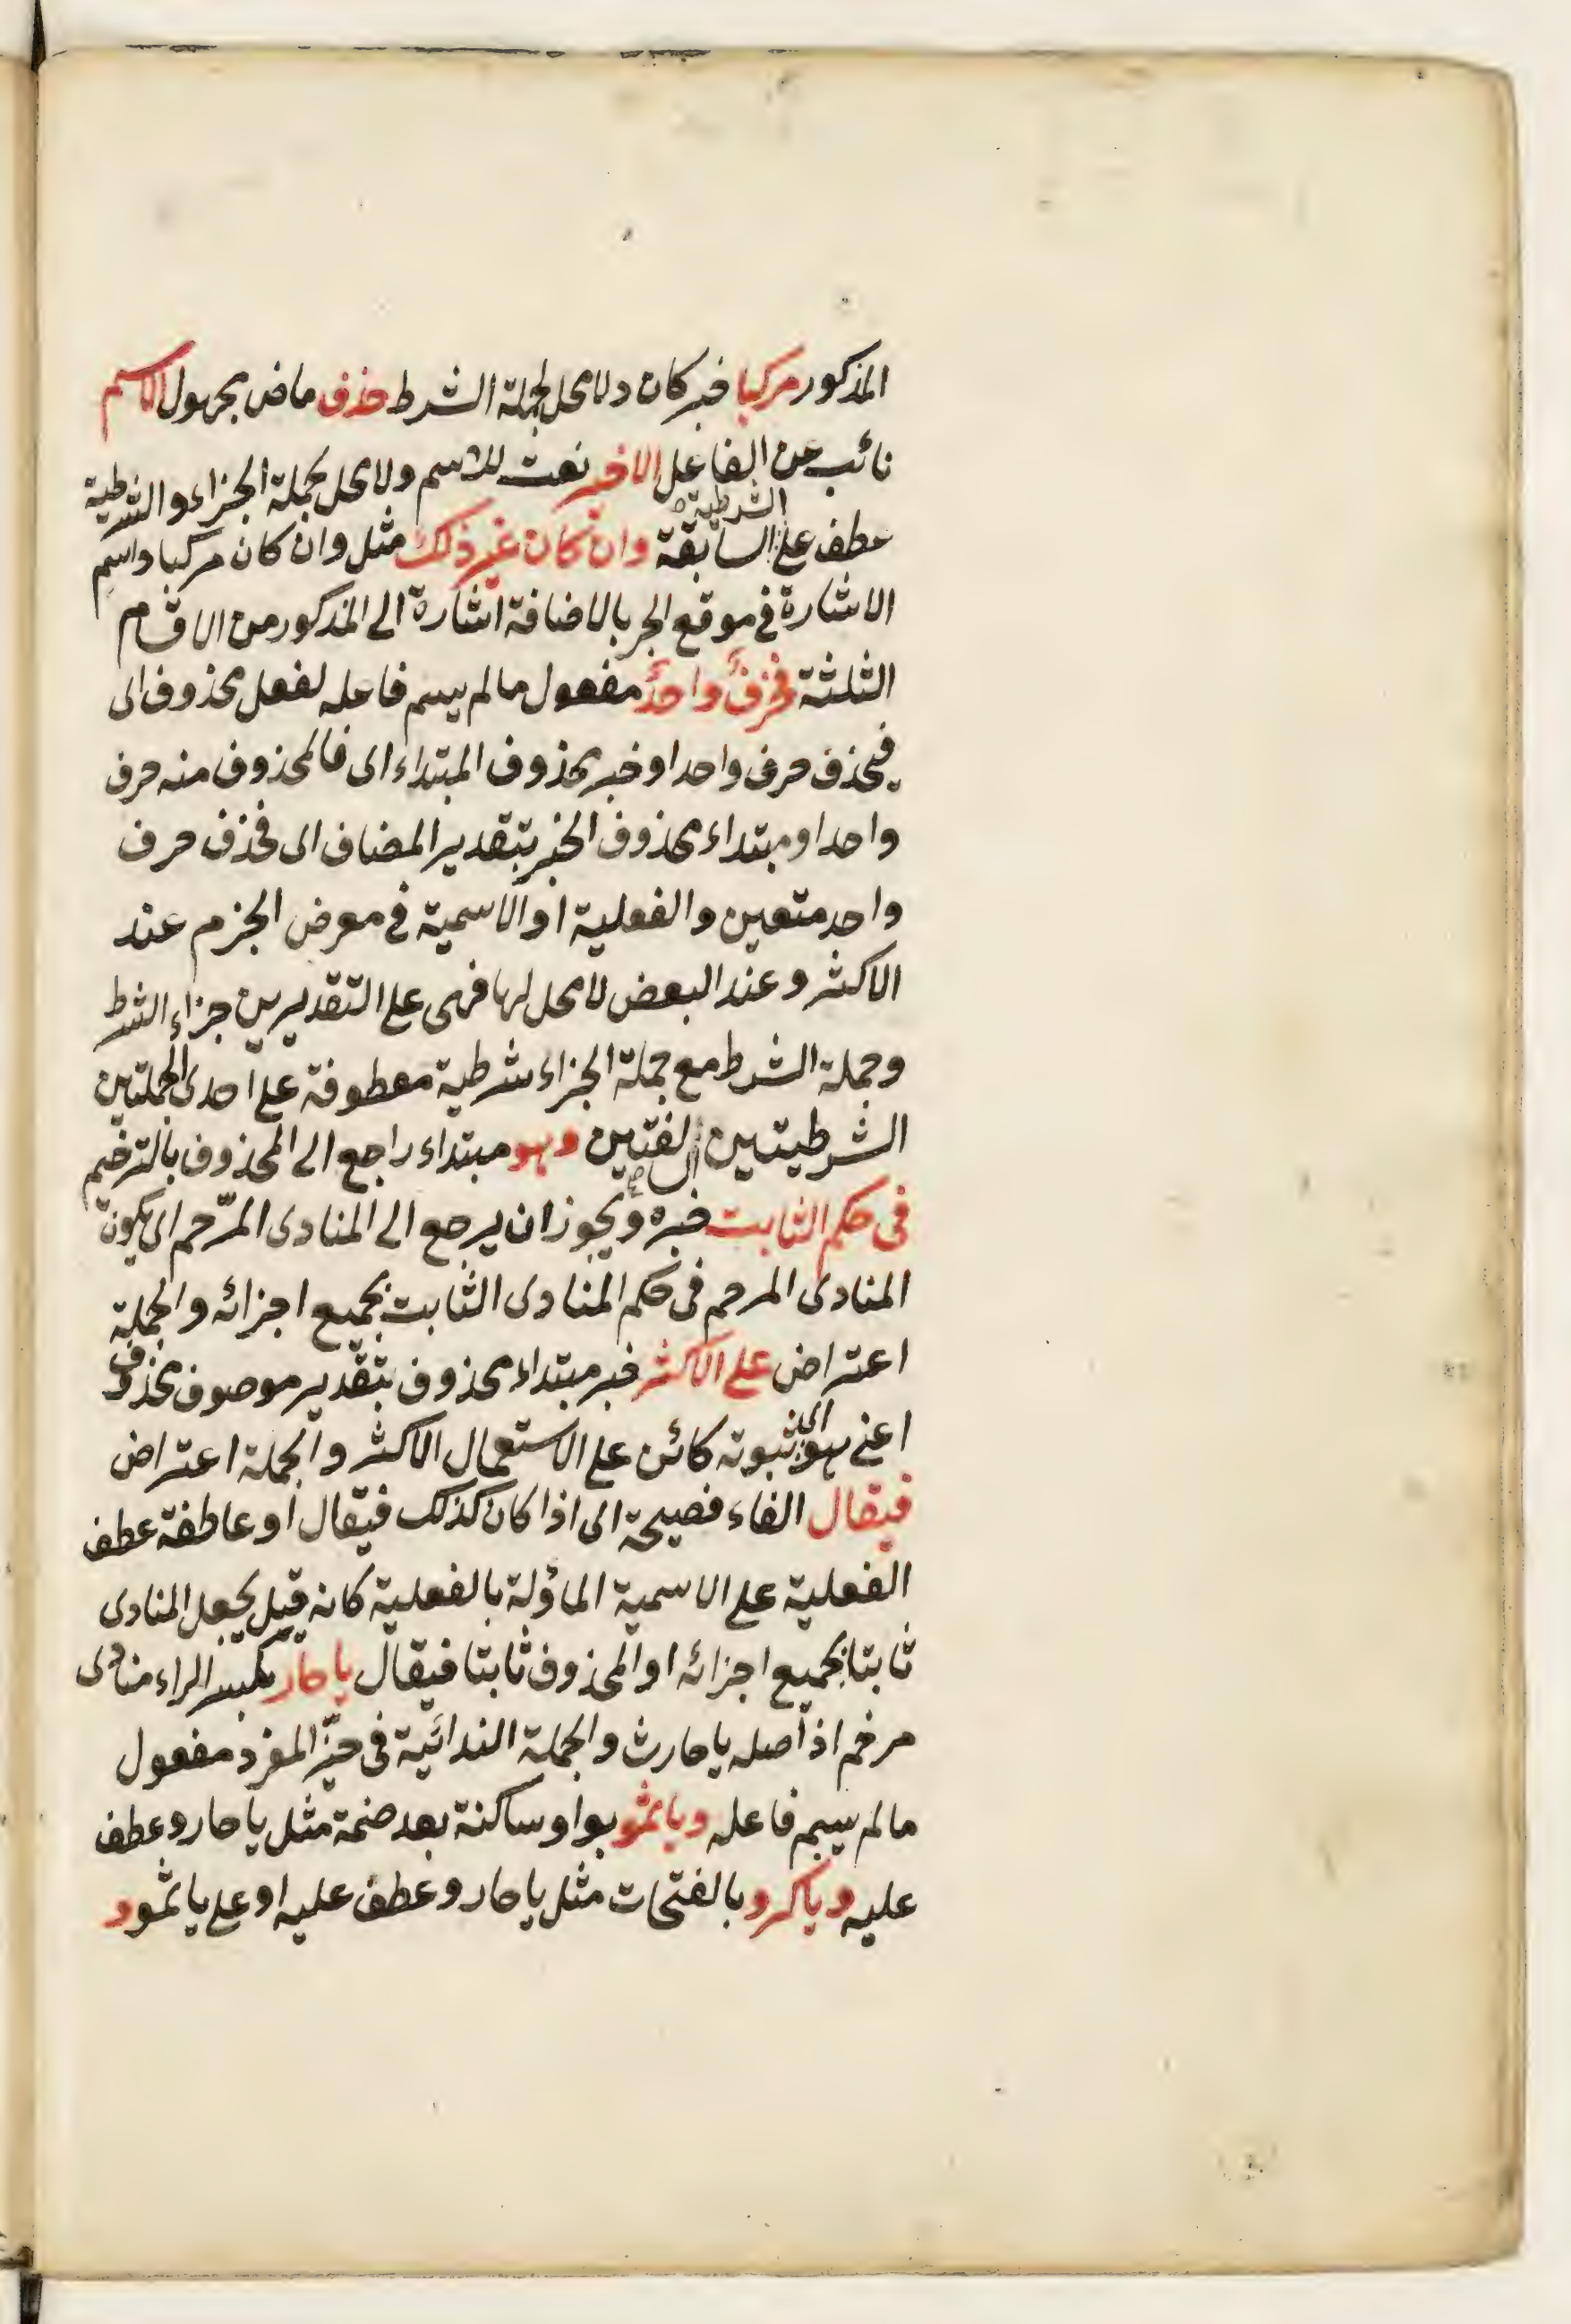 المذكور مركبا خبر كان ولا محل لجملة الشرط حذف ماض مجهول الاسم
نائب عن الفاعل الاخير نعت للاسم ولا محل لجملة الجزاء والشرطية
عطف على الشرطية السابقة وان كان غير ذلك مثل وان كان مركبا واسم
الاشارة في موقع الجر بالاضافة اشارة الى المذكور من الاقسام
الثلثة فحرف واحد مفعول ما لم يسم فاعله لفعل محذوف اى
فيحذف حرف واحد او خبر محذوف المبتداء اى فالمحذوف منه حرف
واحد او مبتداء محذوف الخبر بتقدير المضاف اى فحذف حرف
واحد متعين والفعلية او الاسمية في معرض الجزم عند
الاكثر وعند البعض لا محل لها فهى على التقديرين جزاء الشرط
وجملة الشرط مع جملة الجزاء شرطية معطوفة على احدى الجملتين
الشرطيتين السالفتين وهو مبتداء راجع الى المحذوف بالترخيم
فى حكم الثابت خبره ويجوز ان يرجع الى المنادى المرّحم اى يكون
المنادى المرحم فى حكم المنادى الثابت بجميع اجزائه والجملة
اعتراض على الاكثر خبر مبتداء محذوف بتقدير موصوف محذوف
اعنى هو اى ثبوته كائن على الاستعمال الاكثر والجملة اعتراض
فيقال الفاء فصيحة اى اذا كان كذلك فيقال او عاطفة عطف
الفعلية على الاسمية المأولة بالفعلية كانه قيل يجعل المنادى
ثابتا بجميع اجزائه او المحذوف ثابتا فيقال يا حار بكسر الراء منادى
مرخم اذ اصله يا حارث والجملة الندائية فى حيّز المفرد مفعول
ما لم يسم فاعله ويا ثمو بواو ساكنة بعد ضمة مثل يا حار وعطف
عليه ويا كرو بالفتحات مثل يا حار وعطف عليه او على يا ثمو و